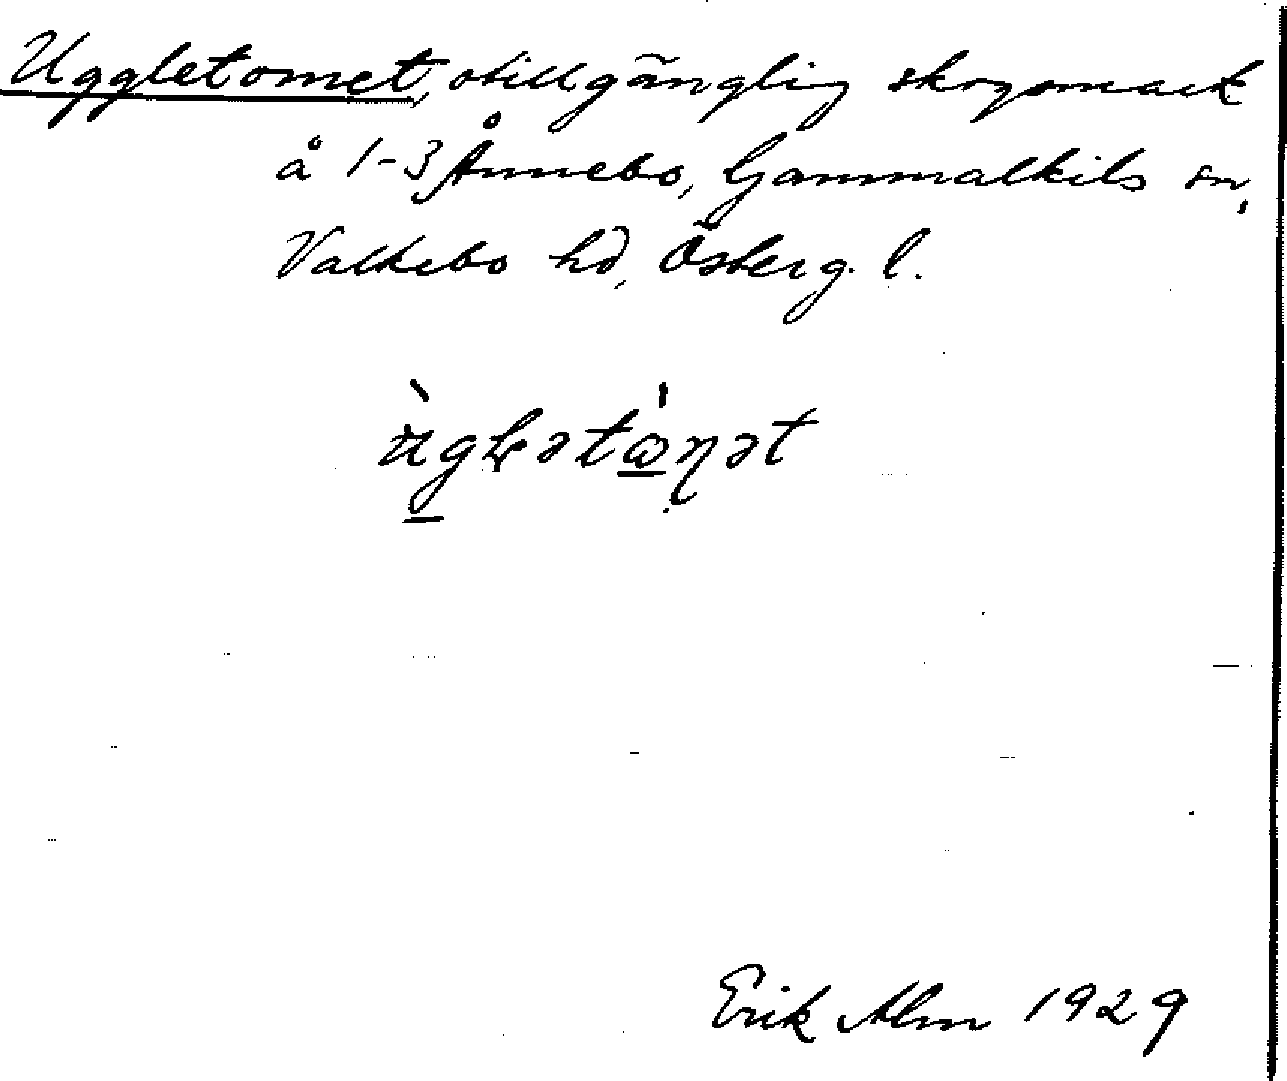 Uggletomet, otillgänglig skogsmark
å 1-3 Ånnebo, Gammalkils sn,
Valkebo hd, Österg. l.
Erik Alm 1929